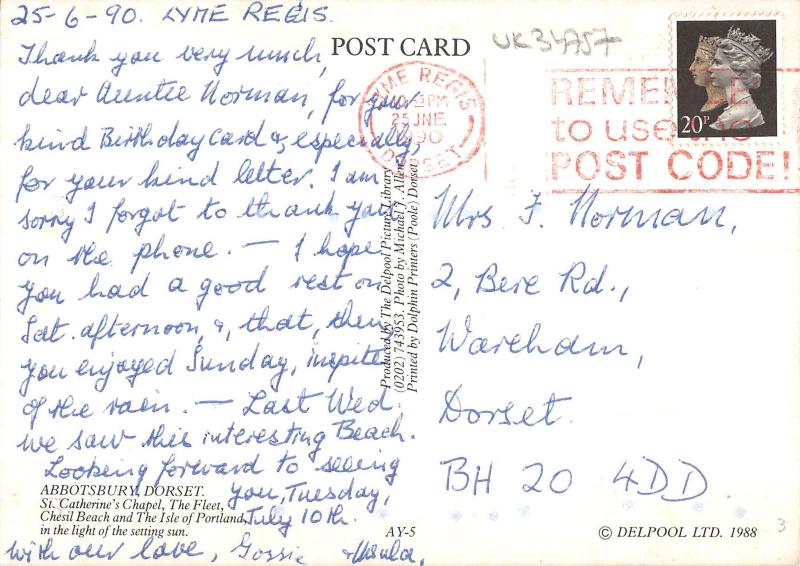 25-6-90. LYME REGIS.
Thank you very much,
dear Auntie Norman, for your
kind Birthday card &, especially,
for your kind letter. I am
sorry I forgot to thank you
on the phone. — I hope
you had a good rest on
Sat. afternoon, &, that, then
you enjoyed Sunday, inspite
of the rain. — Last Wed.
we saw this interesting Beach.
Looking forward to seeing
you, Tuesday,
July 10th.
with our love, Gossie & Ursula.
ABBOTSBURY, DORSET.
St. Catherine's Chapel, The Fleet,
Chesil Beach and The Isle of Portland,
in the light of the setting sun.
POST CARD
UK34757
LYME REGIS
PM
25 JNE
1990
DORSET
REMEMBER
to use the
POST CODE!
20P
Produced by The Delpool Picture Library
(0202) 743953. Photo by Michael J. Allen
Printed by Dolphin Printers (Poole) Dorset
Mrs F. Norman,
2, Bere Rd.,
Wareham,
Dorset.
BH 20 4DD.
AY-5
© DELPOOL LTD. 1988
3